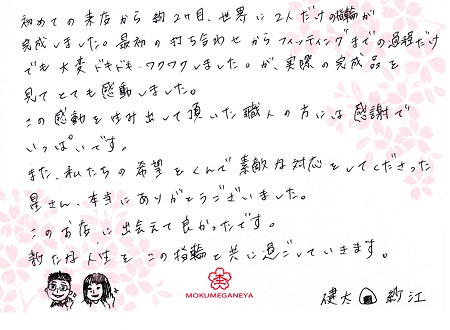 初めての来店から約2ヶ月、世界に2人だけの指輪が
完成しました。最初の打ち合わせからフィッティングまでの過程だけ
でも大変ドキドキ・ワクワクしましたが、実際の完成品を
見てとても感動しました。
この感動を生み出して頂いた職人の方には感謝で
いっぱいです。
また、私たちの希望をくんで素敵な対応をしてくださった
星さん、本当にありがとうございました。
このお店に出会えて良かったです。
新たな人生をこの指輪と共に過ごしていきます。
MOKUMEGANEYA
健太 紗江